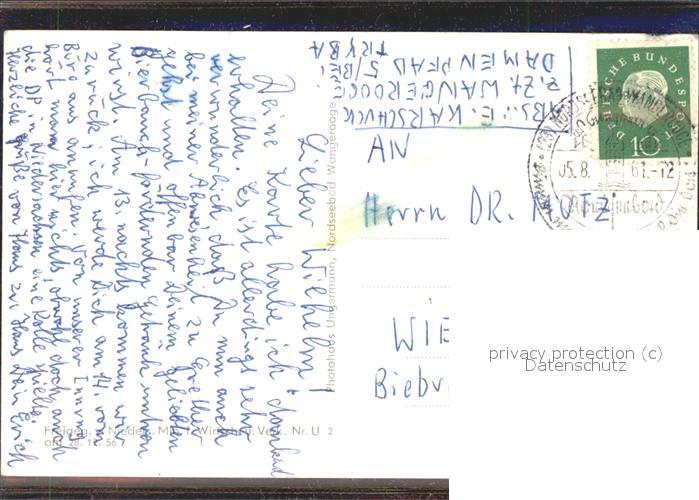 Lieber Wilhelm!
Deine Karte habe ich dankend
erhalten. Es ist allerdings sehr
verwunderlich daß Du nun auch
bei meiner Abwesenheit zu
und offenbar Deinem geliebten
Bierbauch-fördernden Getränk untreu
wirst. Am 13. nachts kommen wir
zurück; ich werde Dich am 14. vom
Büro aus anrufen. Von unserer Innung
hört man hier nichts, obwohl doch auch
die DP in Niedersachsen eine Rolle spielt.
Herzliche Grüße von Haus zu Haus Dein Erich
ABS.: E. KARSCHUCK
Z. Zt. WANGEROOGE
DAMENPFAD 5/BEI
TRYBA
AN
Herrn DR. MOTZ
WIE
Biebr
Photohaus Ungermann, Nordseebad Wangerooge
Freigeg. Nieders. Min. f. Wirtsch. u. Verk. Nr. U 2
am 28. 12. 56
DEUTSCHE BUNDESPOST
10
NORDSEEBAD WANGEROOGE
05.8.61.-12
privacy protection (c)
Datenschutz